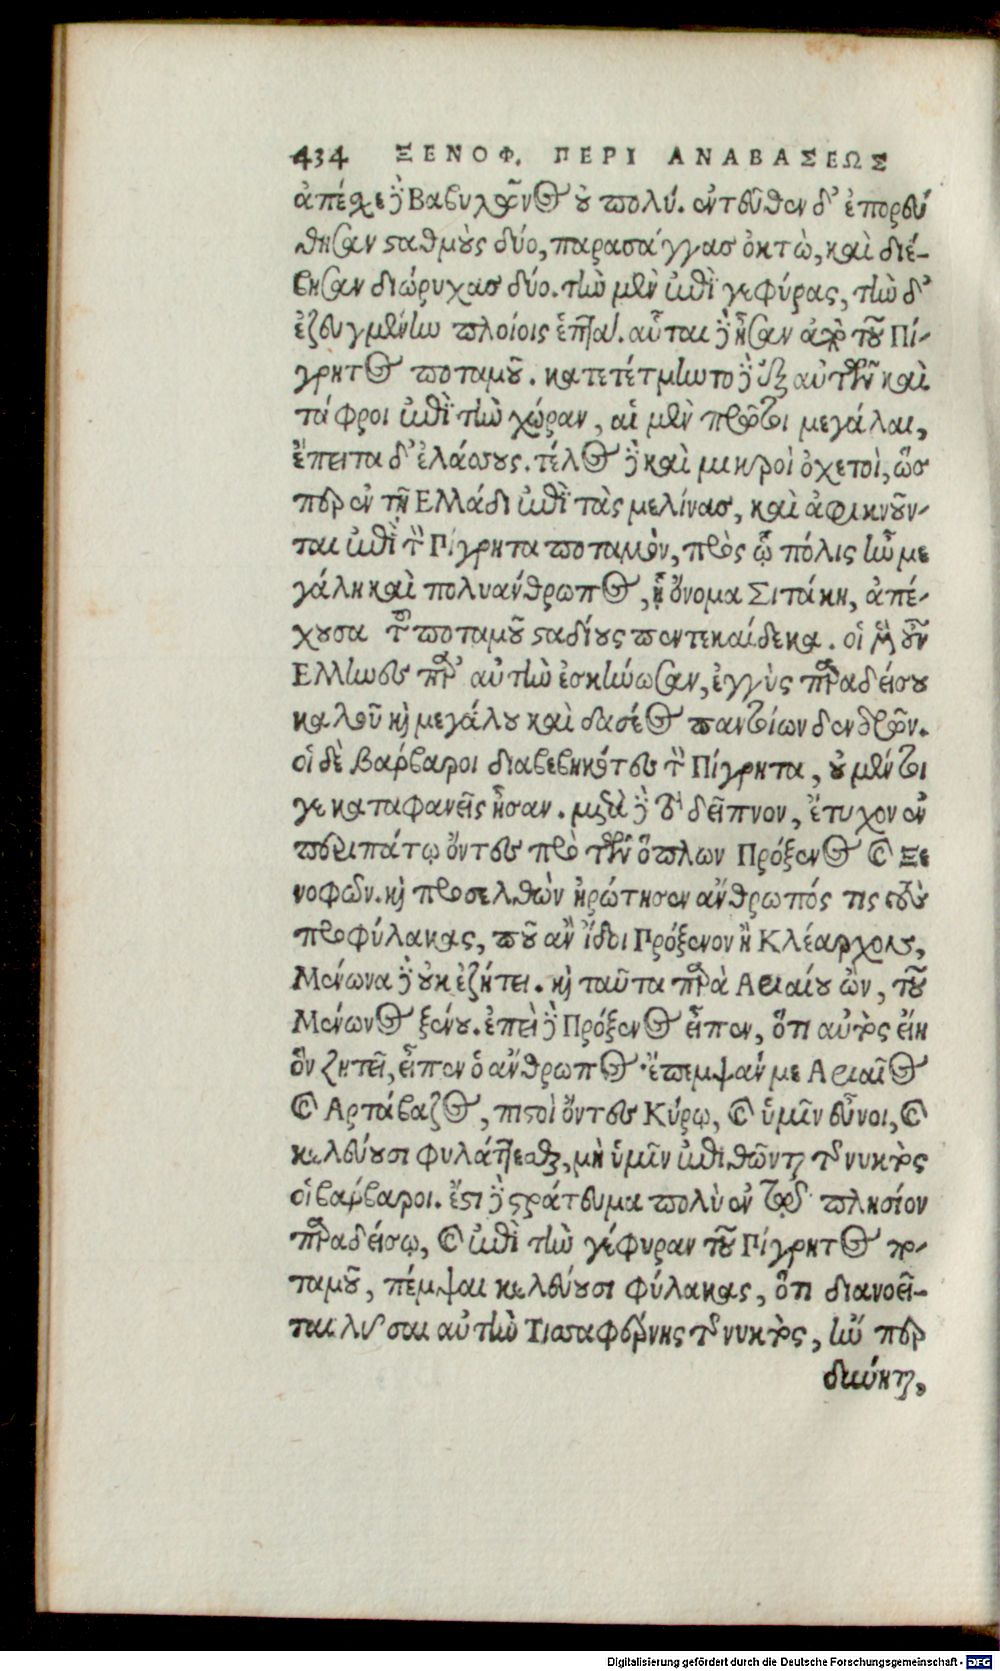 434 ΞΕΝΟΦ. ΠΕΡΙ ΑΝΑΒΑΣΕΩΣ
ἀπέχει δὲ Βαβυλῶνος οὐ πολύ. ἐντεῦθεν δ' ἐπορεύ
θησαν σταθμοὺς δύο, παρασάγγας ὀκτὼ, καὶ διέ-
βησαν διώρυχας δύο. τὴν μὲν ἐπὶ γεφύρας, τὴν δ'
ἐζευγμένην πλοίοις ἑπτά. αὗται δὲ ἦσαν ἀπὸ τοῦ Πί-
γρητος ποταμοῦ. κατετέτμηντο δὲ ἐξ αὐτῶν καὶ
τάφροι ἐπὶ τὴν χώραν, αἱ μὲν πρῶται μεγάλαι,
ἔπειτα δ' ἐλάσους. τέλος δὲ καὶ μικροὶ ὀχετοὶ, ὥσ
περ ἐν τῇ Ελλάδι ἐπὶ τὰς μελίνας, καὶ ἀφικνοῦν-
ται ἐπὶ τὸν Πίγρητα ποταμὸν, πρὸς ᾧ πόλις ἦν με
γάλη καὶ πολυάνθρωπος, ᾗ ὄνομα Σιτάκη, ἀπέ-
χουσα τοῦ ποταμοῦ σταδίους πεντεκαίδεκα. οἱ μὲν οὖν
Ελληνες παρ' αὐτὴν ἐσκήνωσαν, ἐγγὺς παραδείσου
καλοῦ καὶ μεγάλου καὶ δασέος παντοίων δένδρων.
οἱ δὲ βάρβαροι διαβεβηκότες τὸν Πίγρητα, οὐ μέντοι
γε καταφανεῖς ἦσαν. μετὰ δὲ τὸ δεῖπνον, ἔτυχον ἐν
περιπάτῳ ὄντες πρὸ τῶν ὅπλων Πρόξενος καὶ Ξε
νοφῶν. καὶ προσελθὼν ἠρώτησεν ἄνθρωπός τις τοὺς
προφύλακας, ποῦ ἂν ἴδοι Πρόξενον ἢ Κλέαρχον,
Μένωνα δὲ οὐκ ἐζήτει. καὶ ταῦτα παρὰ Αριαίου ὢν, τοῦ
Μένωνος ξένου. ἐπεὶ δὲ Πρόξενος εἶπεν, ὅτι αὐτός εἴη
ὃν ζητεῖ, εἶπεν ὁ ἄνθρωπος· ἔπεμψάν με Αριαῖος
καὶ Αρτάβαζος, πιστοὶ ὄντες Κύρῳ, καὶ ὑμῖν εὖνοι, καὶ
κελεύουσι φυλάττεσθαι, μὴ ὑμῖν ἐπιθῶνται τῆς νυκτὸς
οἱ βάρβαροι. ἔστι δὲ στράτευμα πολὺ ἐν τῷ πλησίον
παραδείσῳ, καὶ ἐπὶ τὴν γέφυραν τοῦ Πίγρητος πο-
ταμοῦ, πέμψαι κελεύουσι φύλακας, ὅτι διανοεῖ-
ται λῦσαι αὐτὴν Τισσαφέρνης τῆς νυκτὸς, ἢν περ
δύνηται,
Digitalisierung gefördert durch die Deutsche Forschungsgemeinschaft - DFG